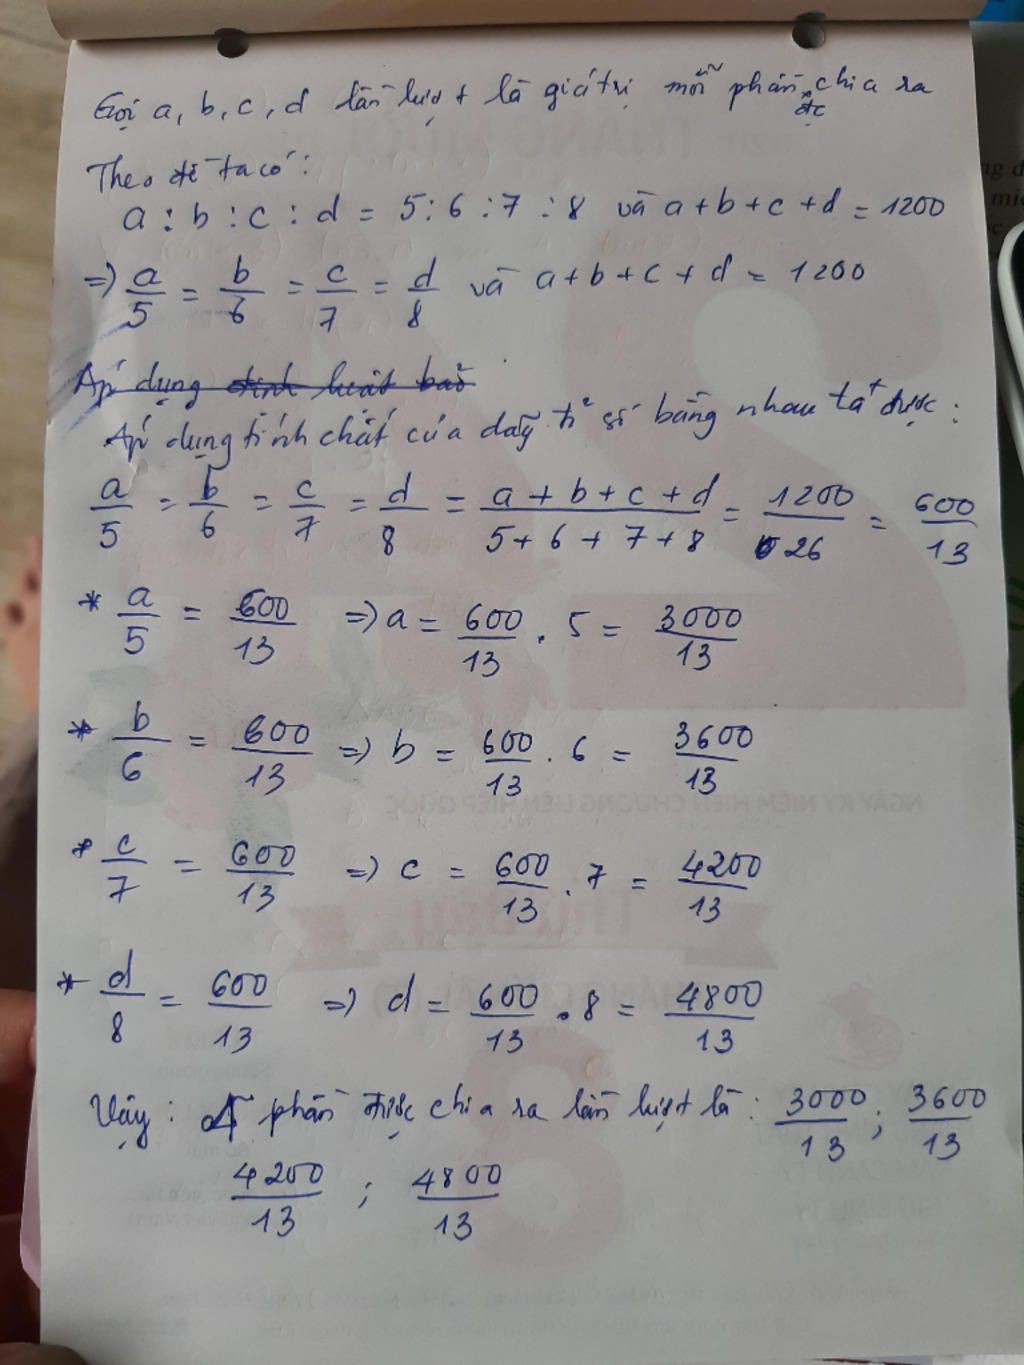 Gọi a, b, c, d lần lượt là giá trị mỗi phần đc chia ra
Theo đề ta có:
a : b : c : d = 5 : 6 : 7 : 8 và a + b + c + d = 1200
=> a/5 = b/6 = c/7 = d/8 và a + b + c + d = 1200
Áp dụng
Áp dụng tính chất của dãy tỉ số bằng nhau ta được:
a/5 = b/6 = c/7 = d/8 = (a + b + c + d)/(5 + 6 + 7 + 8) = 1200/26 = 600/13
* a/5 = 600/13 => a = 600/13 . 5 = 3000/13
* b/6 = 600/13 => b = 600/13 . 6 = 3600/13
* c/7 = 600/13 => c = 600/13 . 7 = 4200/13
* d/8 = 600/13 => d = 600/13 . 8 = 4800/13
Vậy: 4 phần được chia ra lần lượt là: 3000/13 ; 3600/13
4200/13 ; 4800/13
NGÀY KỶ NIỆM HIẾN CHƯƠNG LIÊN HIỆP QUỐC